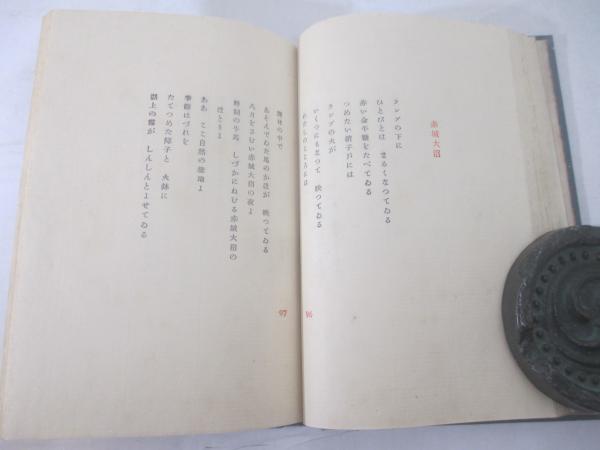 赤城大沼
ランプの下に
ひとびとは まるくなつて ゐる
赤い金平糖をたべてゐる
つめたい硝子戸には
ランプの火が
いくつにもなつて 映つてゐる
わたしのこころには
96
あそんでゐた馬のかほが 映つてゐる
八月なほさむい赤城大沼の夜よ
しづかにねむる赤城大沼の
ほとりよ
ああ ここ自然の
季節はづれを
たてつめた障子と 火鉢に
湖上の霧が しんしんとよせてゐる
97